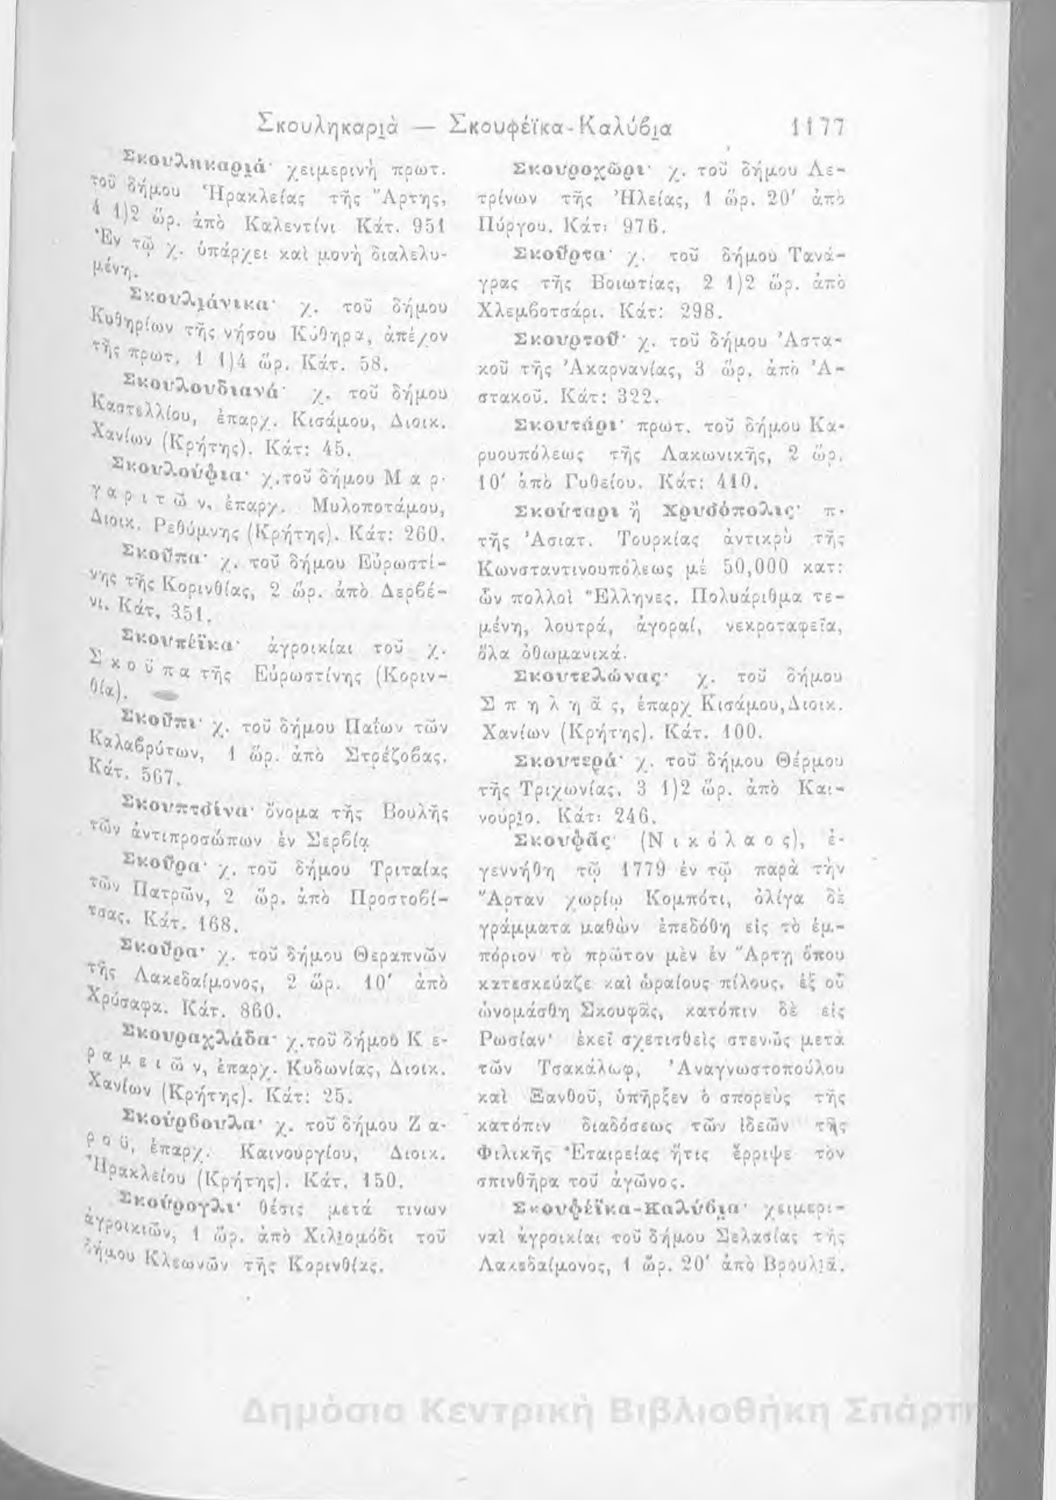 Σκουληκαριὰ — Σκουφέϊκα-Καλύβια 1177
Σκουληκαριά· χειμερινὴ πρωτ.
τοῦ δήμου Ἡρακλείας τῆς Ἄρτης,
4 1)2 ὥρ. ἀπὸ Καλεντίνι Κάτ. 951
Ἐν τῷ χ. ὑπάρχει καὶ μονὴ διαλελυ-
μένη.
Σκουλιάνικα· χ. τοῦ δήμου
Κυθηρίων τῆς νήσου Κύθηρα, ἀπέχον
τῆς πρωτ. 1 1)4 ὥρ. Κάτ. 58.
Σκουλουδιανά· χ. τοῦ δήμου
Καστελλίου, ἐπαρχ. Κισάμου, Διοικ.
Χανίων (Κρήτης). Κάτ: 45.
Σκουλούφια· χ. τοῦ δήμου Μ α ρ-
γ α ρ ι τ ῶ ν, ἐπαρχ. Μυλοποτάμου,
Διοικ. Ρεθύμνης (Κρήτης). Κάτ: 260.
Σκοῦπα· χ. τοῦ δήμου Εὐρωστί-
νης τῆς Κορινθίας, 2 ὥρ. ἀπὸ Δερβέ-
νι. Κάτ. 351.
Σκουπέϊκα· ἀγροικίαι τοῦ χ.
Σ κ ο ῦ π α τῆς Εὐρωστίνης (Κοριν-
θία).
Σκοῦπι· χ. τοῦ δήμου Παΐων τῶν
Καλαβρύτων, 1 ὥρ. ἀπὸ Στρέζοβας.
Κάτ. 567.
Σκουπτσίνα· ὄνομα τῆς Βουλῆς
τῶν ἀντιπροσώπων ἐν Σερβίᾳ
Σκοῦρα· χ. τοῦ δήμου Τριταίας
τῶν Πατρῶν, 2 ὥρ. ἀπὸ Προστοβί-
τσας. Κάτ. 168.
Σκοῦρα· χ. τοῦ δήμου Θεραπνῶν
τῆς Λακεδαίμονος, 2 ὥρ. 10' ἀπὸ
Χρύσαφα. Κάτ. 860.
Σκουραχλάδα· χ. τοῦ δήμου Κ ε-
ρ α μ ε ι ῶ ν, ἐπαρχ. Κυδωνίας, Διοικ.
Χανίων (Κρήτης). Κάτ: 25.
Σκούρβουλα· χ. τοῦ δήμου Ζ α-
ρ ο ῦ, ἐπαρχ. Καινουργίου, Διοικ.
Ἡρακλείου (Κρήτης). Κάτ. 150.
Σκούρογλι· θέσις μετά τινων
ἀγροικιῶν, 1 ὥρ. ἀπὸ Χιλιομόδι τοῦ
δήμου Κλεωνῶν τῆς Κορινθίας.
Σκουροχῶρι· χ. τοῦ δήμου Λε-
τρίνων τῆς Ἠλείας, 1 ὥρ. 20' ἀπὸ
Πύργου. Κάτ: 976.
Σκοῦρτα· χ. τοῦ δήμου Τανά-
γρας τῆς Βοιωτίας, 2 1)2 ὥρ. ἀπὸ
Χλεμβοτσάρι. Κάτ: 298.
Σκουρτοῦ· χ. τοῦ δήμου Ἀστα-
κοῦ τῆς Ἀκαρνανίας, 3 ὥρ. ἀπὸ Ἀ-
στακοῦ. Κάτ: 322.
Σκουτάρι· πρωτ. τοῦ δήμου Κα-
ρυουπόλεως τῆς Λακωνικῆς, 2 ὥρ.
10' ἀπὸ Γυθείου. Κάτ: 410.
Σκούταρι ἢ Χρυσόπολις· π.
τῆς Ἀσιατ. Τουρκίας ἀντικρὺ τῆς
Κωνσταντινουπόλεως μὲ 50,000 κατ:
ὧν πολλοὶ Ἕλληνες. Πολυάριθμα τε-
μένη, λουτρά, ἀγοραί, νεκροταφεῖα,
ὅλα ὀθωμανικά.
Σκουτελώνας· χ. τοῦ δήμου
Σ π η λ η ᾶ ς, ἐπαρχ Κισάμου, Διοικ.
Χανίων (Κρήτης). Κάτ. 100.
Σκουτερά· χ. τοῦ δήμου Θέρμου
τῆς Τριχωνίας, 3 1)2 ὥρ. ἀπὸ Και-
νούριο. Κάτ: 246.
Σκουφᾶς· (Ν ι κ ό λ α ο ς), ἐ-
γεννήθη τῷ 1779 ἐν τῷ παρὰ τὴν
Ἄρταν χωρίῳ Κομπότι, ὀλίγα δὲ
γράμματα μαθὼν ἐπεδόθη εἰς τὸ ἐμ-
πόριον τὸ πρῶτον μὲν ἐν Ἄρτῃ ὅπου
κατεσκεύαζε καὶ ὡραίους πίλους, ἐξ οὗ
ὠνομάσθη Σκουφᾶς, κατόπιν δὲ εἰς
Ρωσίαν· ἐκεῖ σχετισθεὶς στενῶς μετὰ
τῶν Τσακάλωφ, Ἀναγνωστοπούλου
καὶ Ξανθοῦ, ὑπῆρξεν ὁ σπορεὺς τῆς
κατόπιν διαδόσεως τῶν ἰδεῶν τῆς
Φιλικῆς Ἑταιρείας ἥτις ἔρριψε τὸν
σπινθῆρα τοῦ ἀγῶνος.
Σκουφέϊκα-Καλύβια· χειμερι-
ναὶ ἀγροικίαι τοῦ δήμου Σελασίας τῆς
Λακεδαίμονος, 1 ὥρ. 20' ἀπὸ Βρουλιᾶ.
Δημόσια Κεντρική Βιβλιοθήκη Σπάρτη